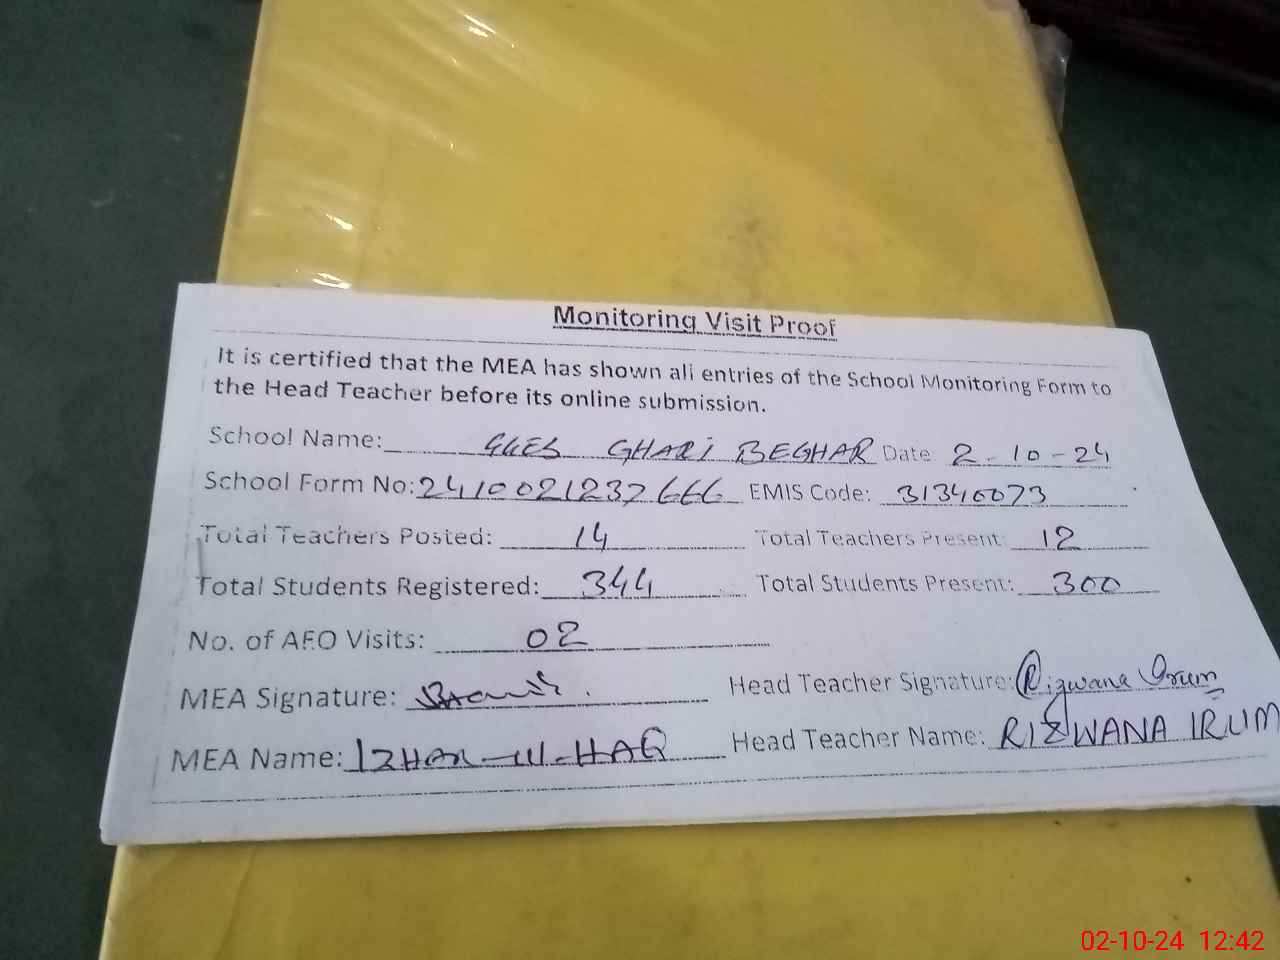 Monitoring Visit Proof
It is certified that the MEA has shown all entries of the School Monitoring Form to
the Head Teacher before its online submission.
School Name: GGES GHARI BEGHAR Date 2-10-24
School Form No: 2410021237666 EMIS Code: 31340073
Total Teachers Posted: 14 Total Teachers Present: 12
Total Students Registered: 344 Total Students Present: 300
No. of AEO Visits: 02
MEA Signature: Head Teacher Signature: Rizwana Irum
MEA Name: IZHAR-UL-HAQ Head Teacher Name: RIZWANA IRUM
02-10-24 12:42